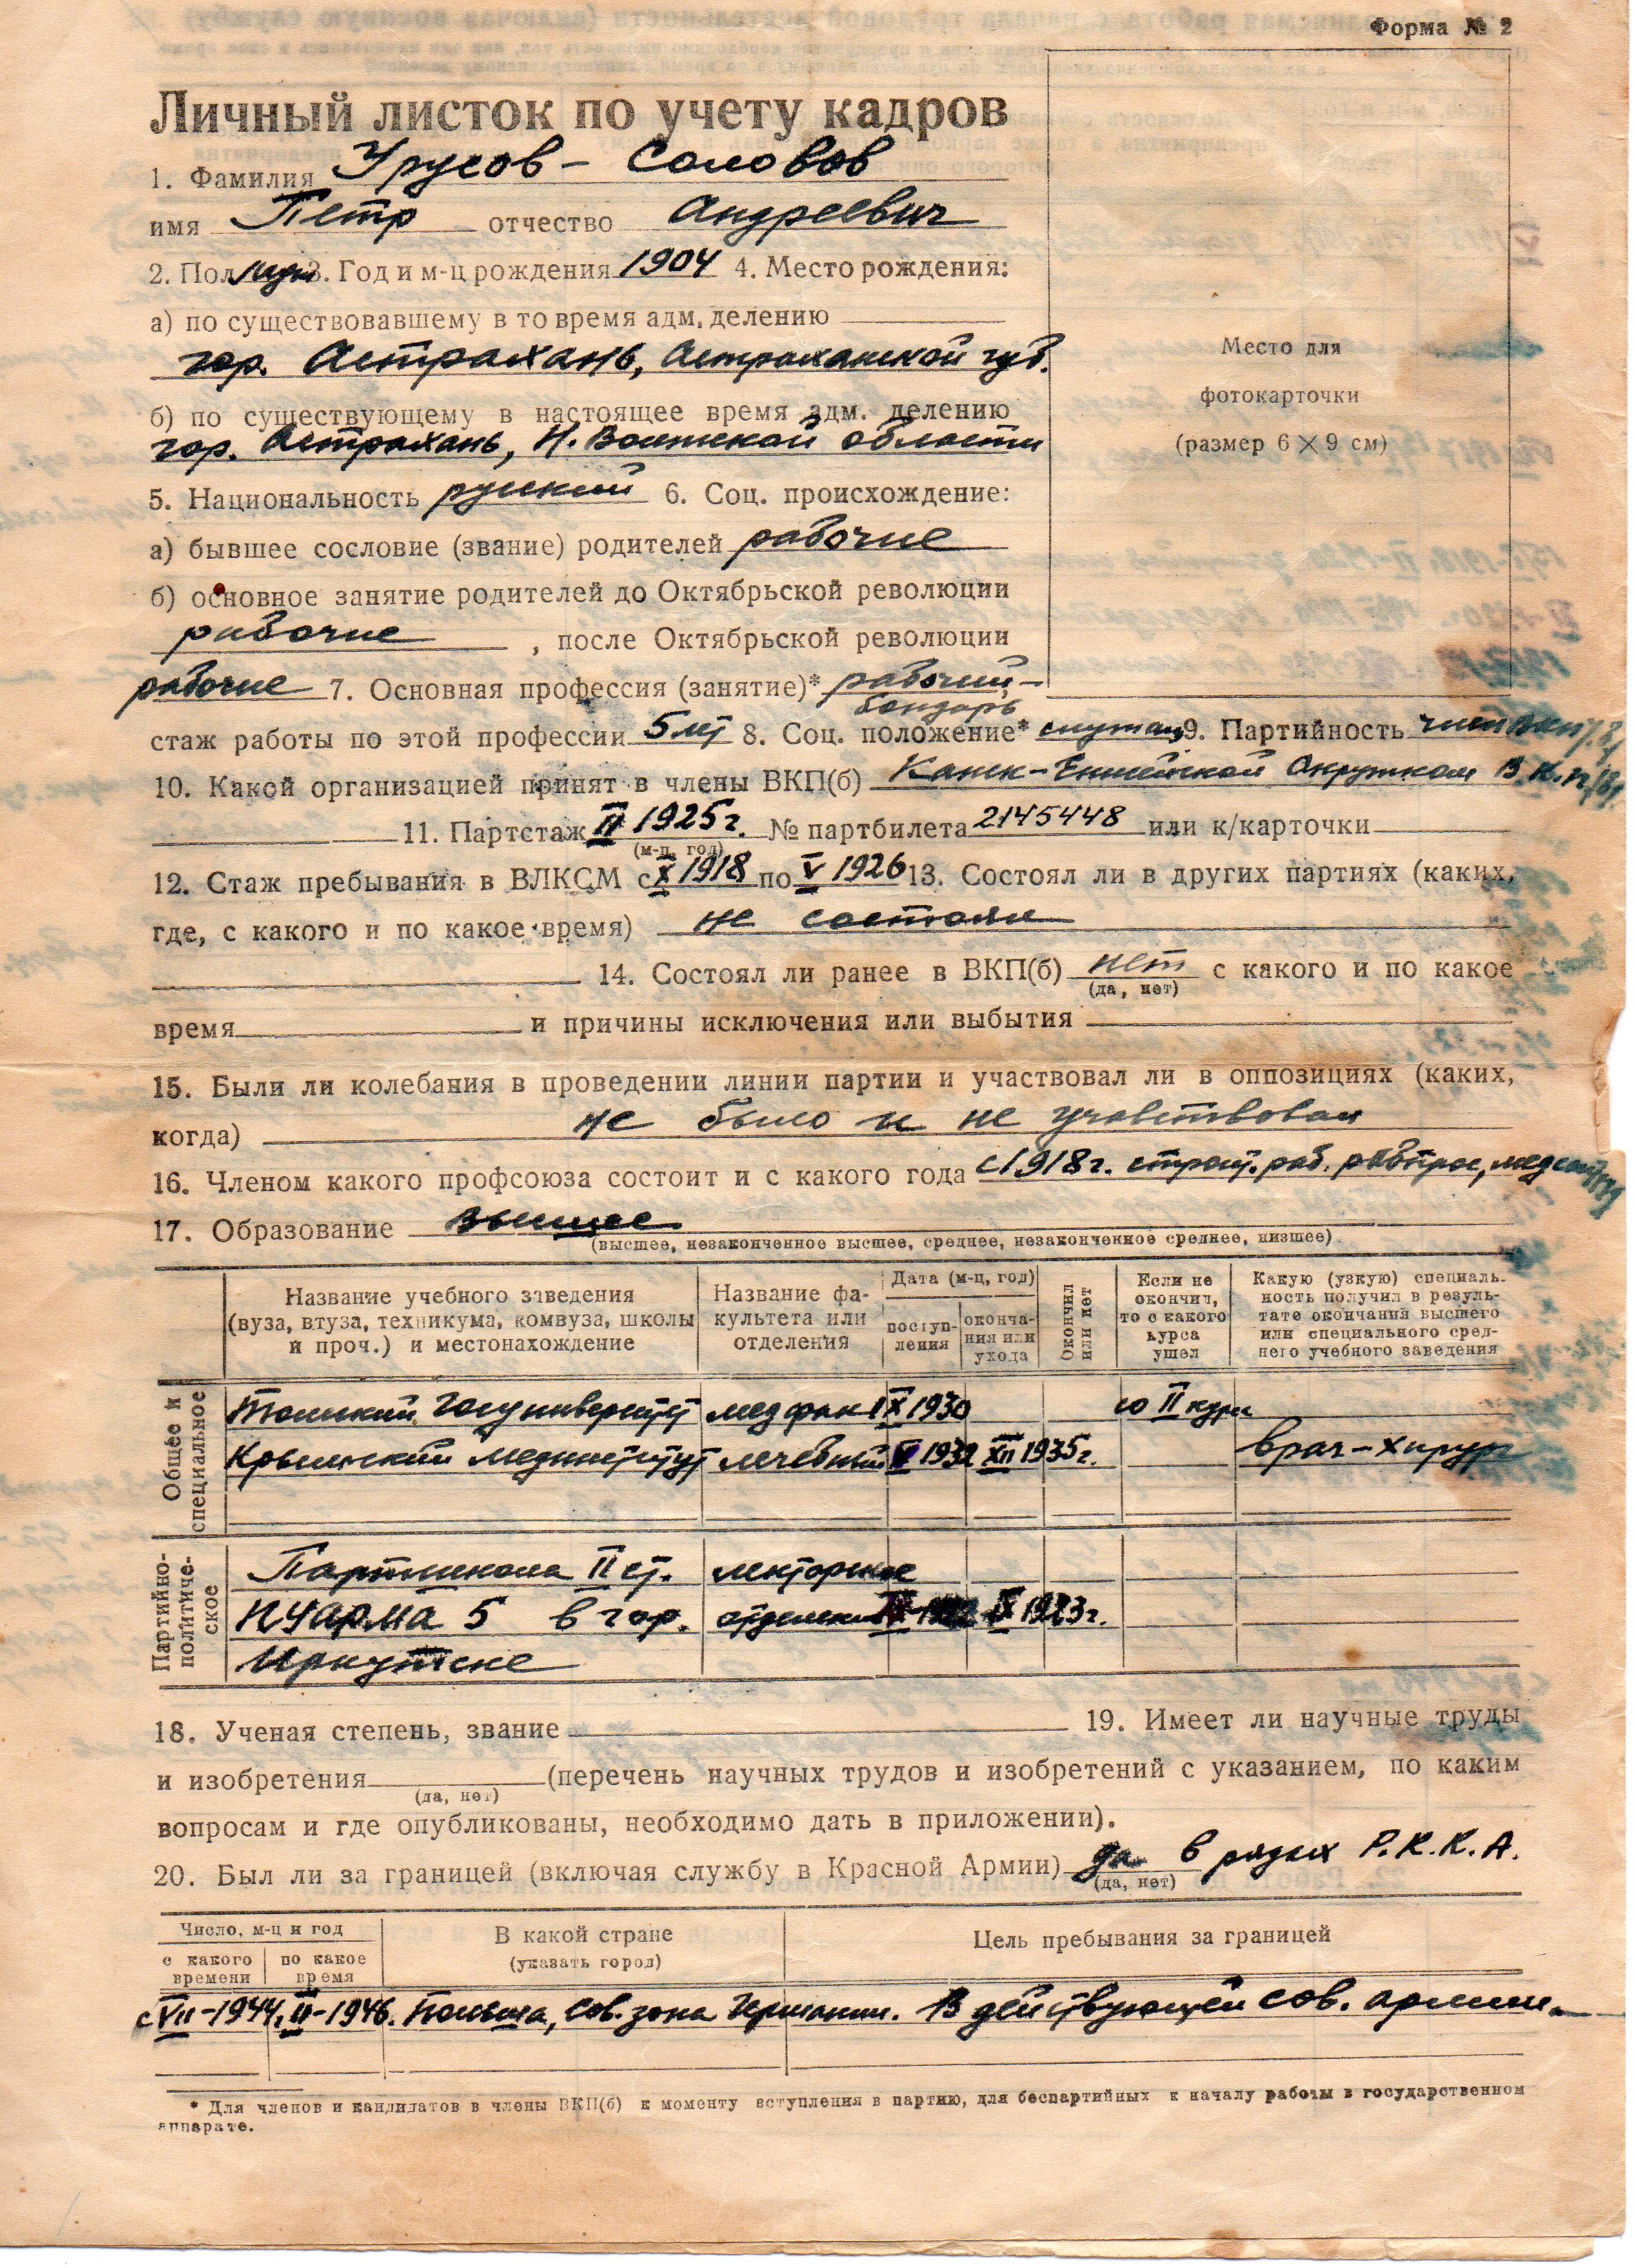 Форма № 2
Личный листок по учету кадров
1. Фамилия Урусов - Соловов
имя Петр отчество Андреевич
2. Пол муж 3. Год и м-ц рождения 1904 4. Место рождения:
а) по существовавшему в то время адм. делению
гор. Астрахань, Астраханской губ.
б) по существующему в настоящее время адм. делению
гор. Астрахань, Н. Волжской области
5. Национальность русский 6. Соц. происхождение:
а) бывшее сословие (звание) родителей рабочие
б) основное занятие родителей до Октябрьской революции
рабочие , после Октябрьской революции
рабочие 7. Основная профессия (занятие)* рабочий -
бондарь
стаж работы по этой профессии 5 лет 8. Соц. положение* служащ 9. Партийность член ВКП/б/
10. Какой организацией принят в члены ВКП(б) Канск-Енисейской Окружком В.К.П./б/.
11. Партстаж II 1925 г. № партбилета 2145448 или к/карточки
(м-ц, год)
12. Стаж пребывания в ВЛКСМ с X 1918 по V 1926 13. Состоял ли в других партиях (каких,
где, с какого и по какое время) не состоял
14. Состоял ли ранее в ВКП(б) нет с какого и по какое
(да, нет)
время и причины исключения или выбытия
15. Были ли колебания в проведении линии партии и участвовал ли в оппозициях (каких,
когда) не было и не участвовал
16. Членом какого профсоюза состоит и с какого года с 1918 г. строит. раб. рабпрос, медсантруд
17. Образование высшее
(высшее, незаконченное высшее, среднее, незаконченное среднее, низшее)
Название учебного заведения (вуза, втуза, техникума, комвуза, школы и проч.) и местонахождение
Название факультета или отделения
Дата (м-ц, год)
поступления
окончания или ухода
Окончил или нет
Если не окончил, то с какого курса ушел
Какую (узкую) специальность получил в результате окончания высшего или специального среднего учебного заведения
Общее и специальное
Томский Госуниверситет медфак IX 1930 со II курса
Крымский мединститут лечебный V 1932 XII 1935 г. врач-хирург
Партийно-политическое
Партшкола II ст. лекторское
ПУАРМА 5 в гор. отделение 1922 IX 1923 г.
Иркутске
18. Ученая степень, звание 19. Имеет ли научные труды
и изобретения (перечень научных трудов и изобретений с указанием, по каким
(да, нет)
вопросам и где опубликованы, необходимо дать в приложении).
20. Был ли за границей (включая службу в Красной Армии) да в рядах Р.К.К.А.
(да, нет)
Число, м-ц и год
с какого времени
по какое время
В какой стране
(указать город)
Цель пребывания за границей
с VII-1944, II-1946. Польша, Сов. зона Германии. В действующей сов. армии
* Для членов и кандидатов в члены ВКП(б) к моменту вступления в партию, для беспартийных к началу работы в государственном
аппарате.
Место для
фотокарточки
(размер 6 × 9 см)